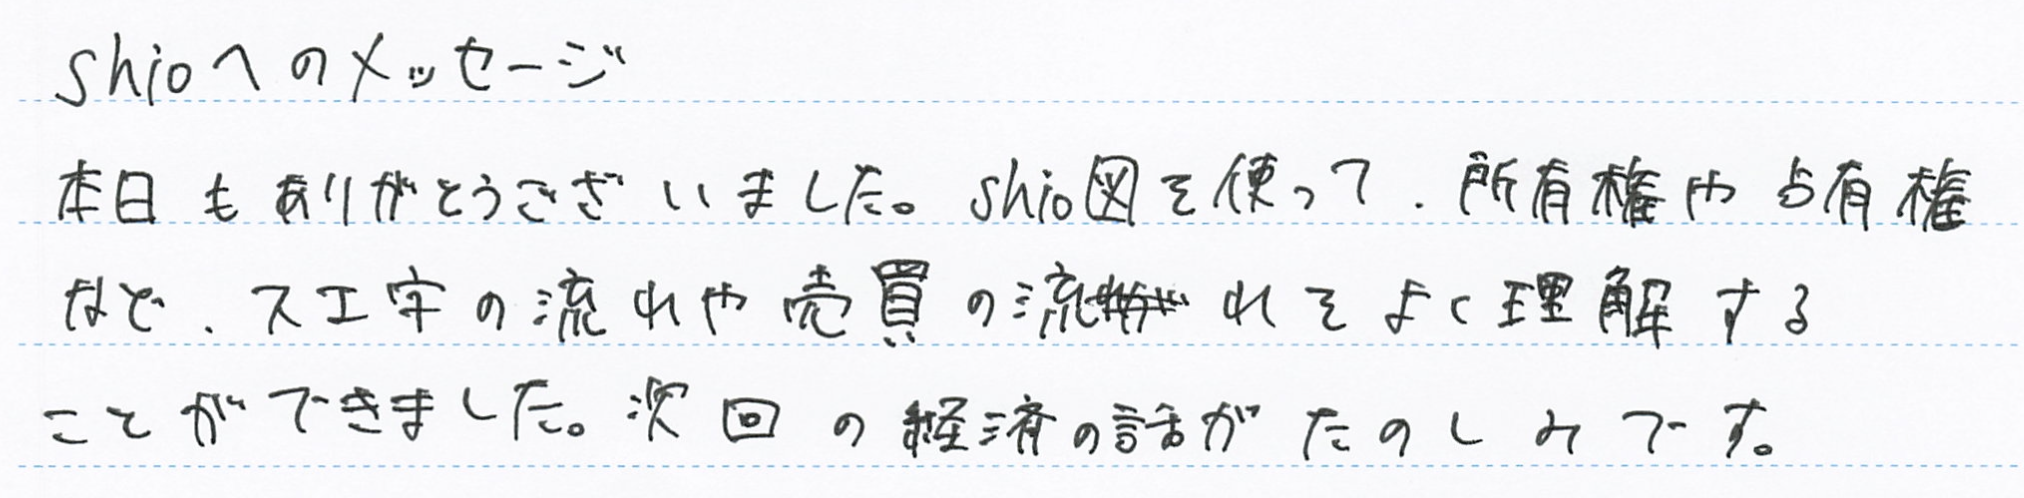 shioへのメッセージ
本日もありがとうございました。shio図を使って、所有権や占有権
など、スエ字の流れや売買の流れをよく理解する
ことができました。次回の経済の話がたのしみです。